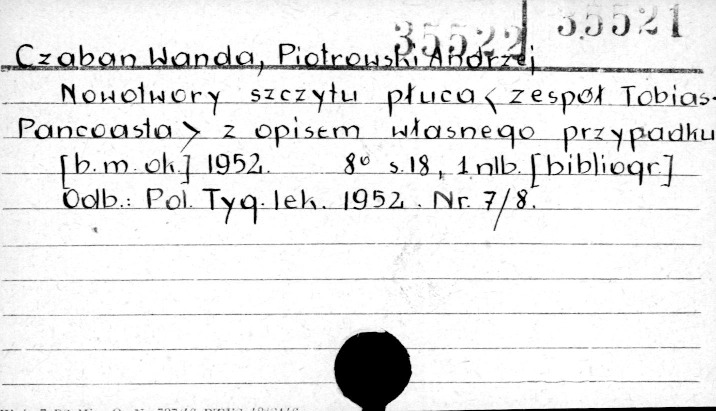 35522 35521
Czaban Wanda, Piotrowski Andrzej
Nowotwory szczytu płuca < zespół Tobias-
Pancoasta > z opisem własnego przypadku
[b.m. ok.] 1952. 8° s.18, 1 nlb. [bibliogr.]
Odb.: Pol. Tyg. lek. 1952. Nr. 7/8.